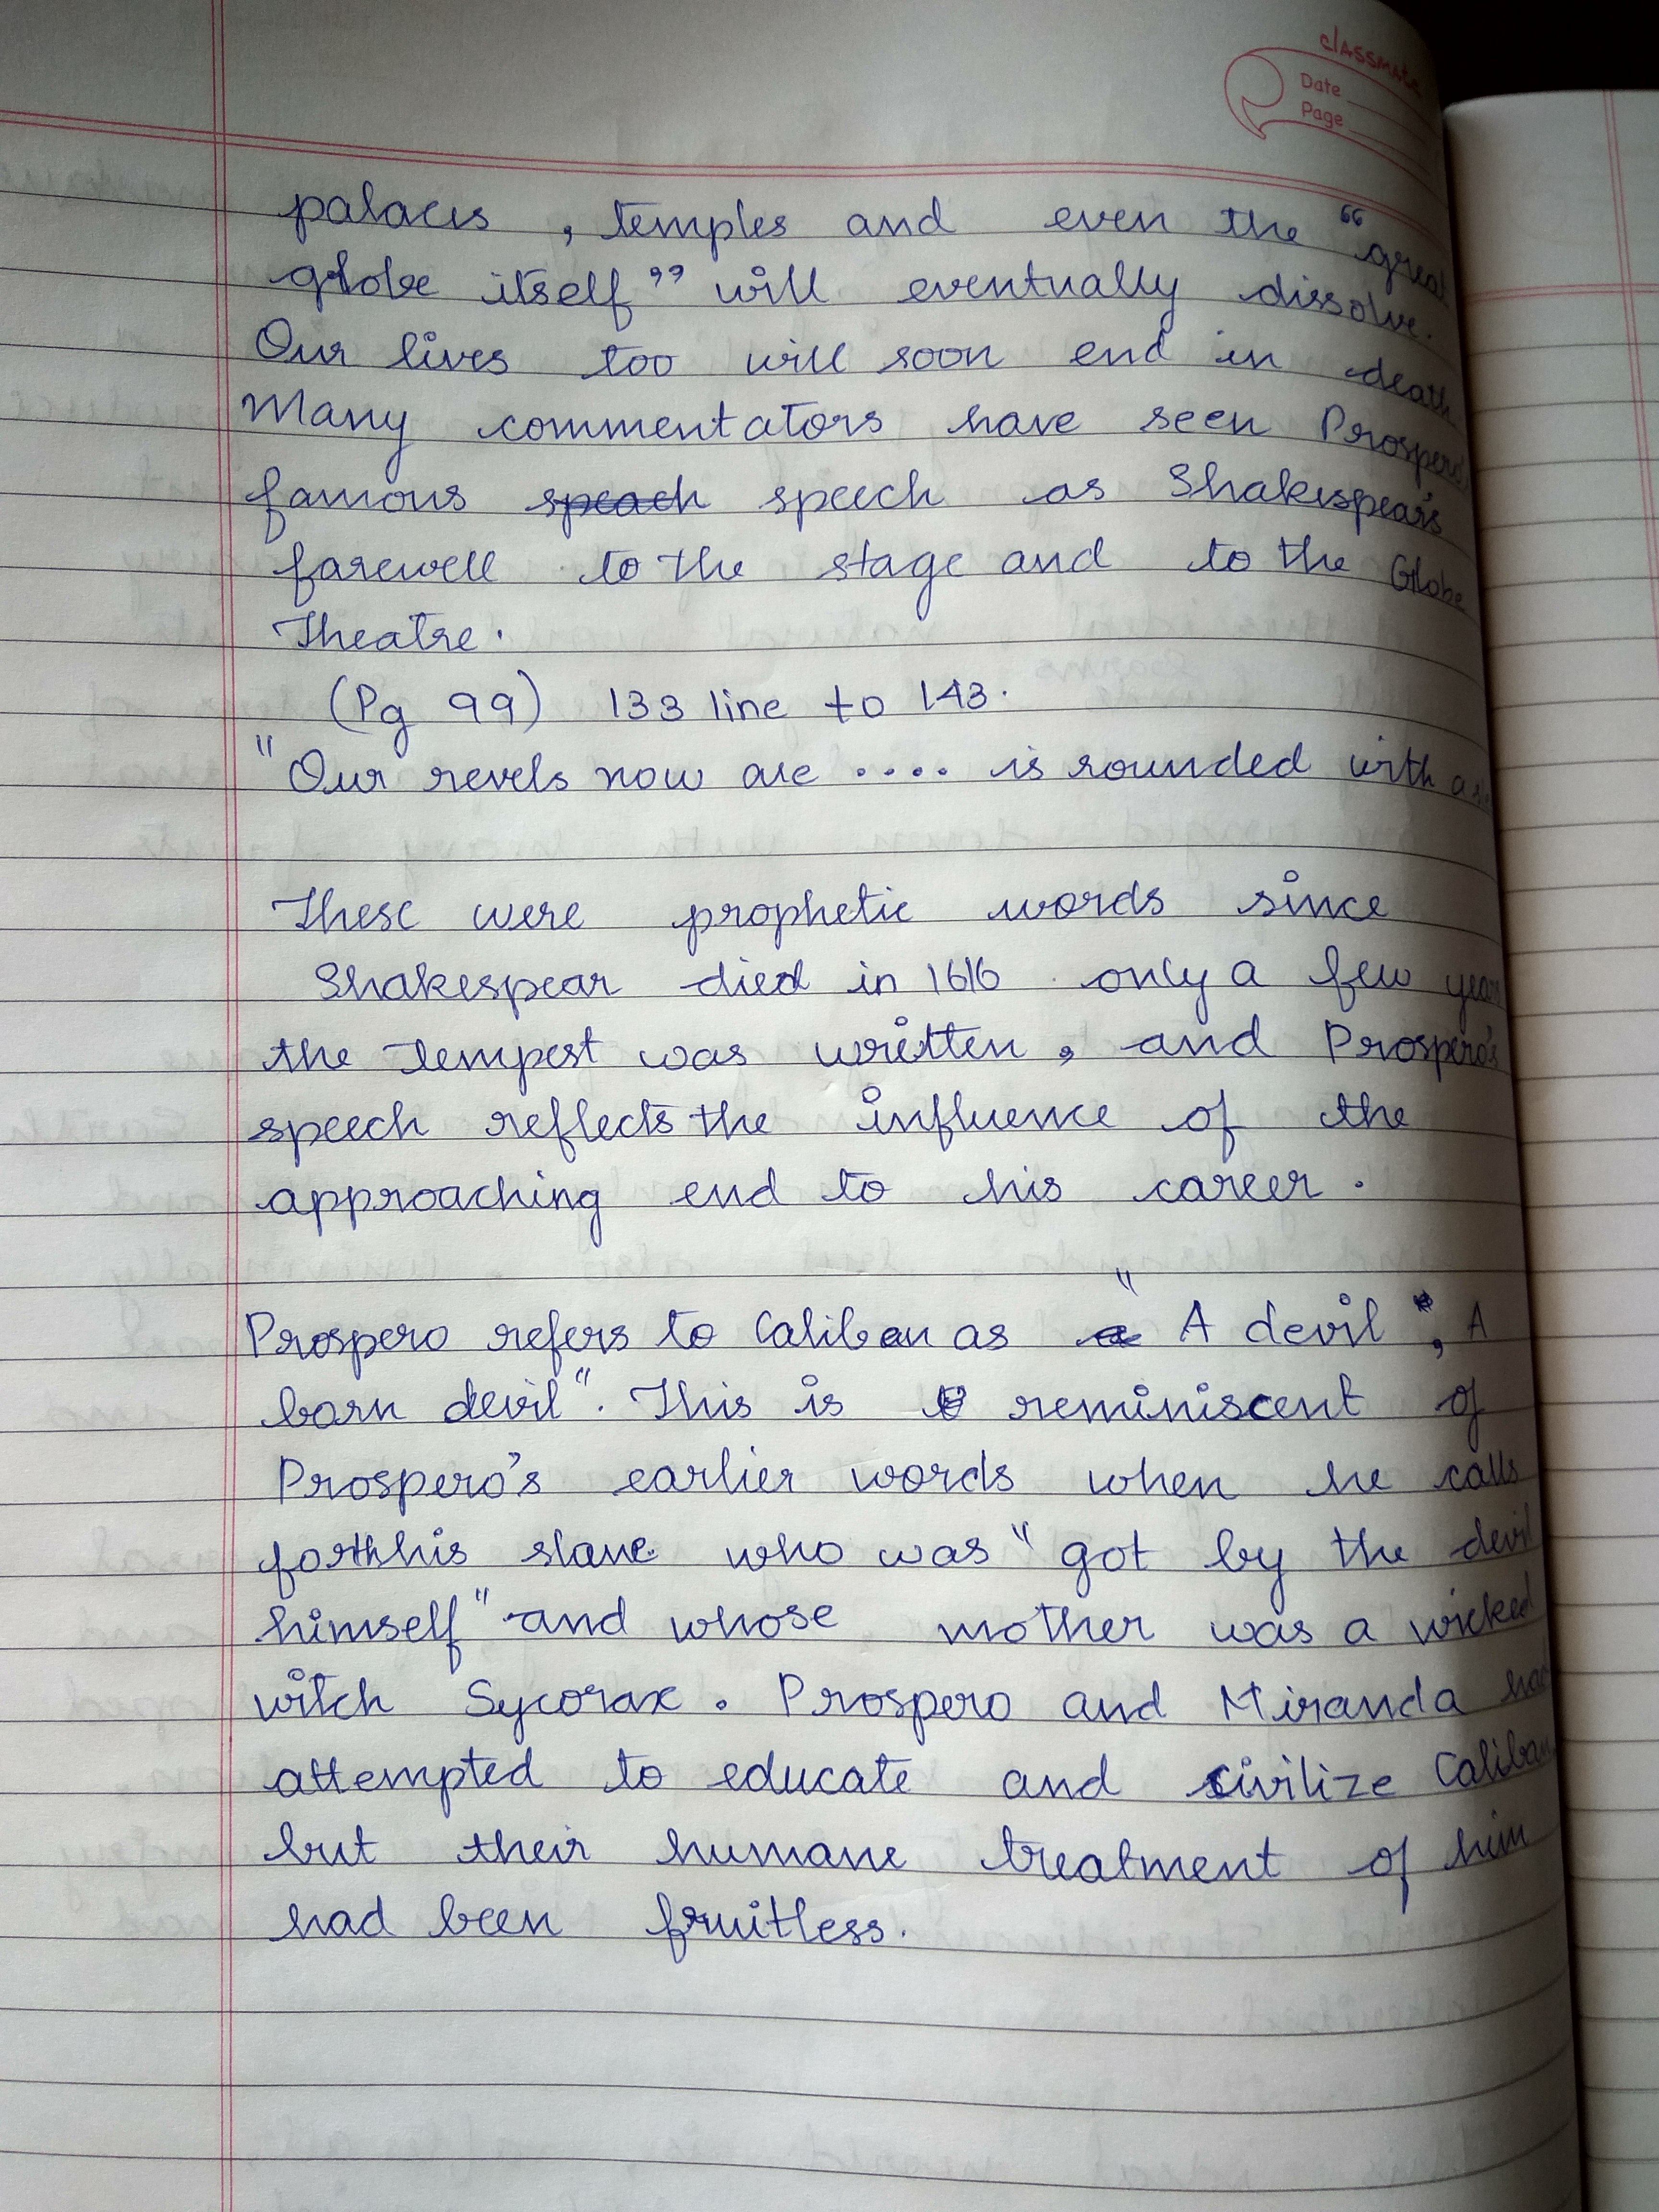 classmate
Date
Page
palaces , temples and even the “great
globe itself” will eventually dissolve.
Our lives too will soon end in death
Many commentators have seen Prospero's
famous speach speech as Shakespear's
farewell to the stage and to the Globe
Theatre.
(Pg 99) 133 line to 143.
"Our revels now are .... is rounded with a
These were prophetic words since
Shakespear died in 1616 only a few years
the Tempest was written, and Prospero's
speech reflects the influence of the
approaching end to his career.
Prospero refers to Caliban as a "A devil", A
born devil". This is reminiscent of
Prospero's earlier words when he calls
forth his slave who was "got by the devil
himself" and whose mother was a wicked
witch Sycorax. Prospero and Miranda had
attempted to educate and civilize Caliban
but their humane treatment of him
had been fruitless.